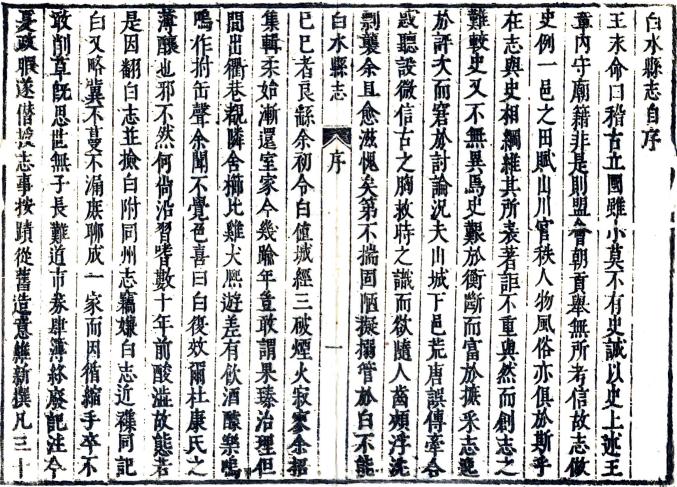 白水縣志自序
王末命曰稽古立國雖小莫不有史誠以史上述王
章內守廟籍非是則盟會朝貢舉無所考信故志倣
史例一邑之田賦山川官秩人物風俗亦俱於斯乎
在志與史相綱維其所袁著詎不重輿然而創志之
難較史又不無異焉史艱於衡斷而富於摭釆志逸
於評次而窘於討論況夫山城下邑荒唐誤傳牽合
惑聽設微信古之胸救時之識而欲隨人齒頰浮洗
剽襲余且愈滋愧矣第不揣固陋擬搦管於白不能
白水縣志
序
一
已已者良繇余初令白值城經三破煙火寂寥余招
集輯柔始漸還室家今幾踰年豈敢謂果臻治理但
間出衢巷觀隣舍櫛比雞犬熙遊差有飲酒釀樂嗚
嗚作拊缶聲余聞不覺色喜曰白復效爾杜康氏之
薄釀也邪不然何尚沿習嗜數十年前酸澁故態若
是因翻白志並撿白附同州志竊嫌白志近襍同記
白又略冀不蔓不漏庶聊成一家而因循縮手卒不
敢削草旣思世無子長難近市劵肆簿終廢記注今
憂政暇遂僭授志事按蹟從舊造意維新撰凡三十